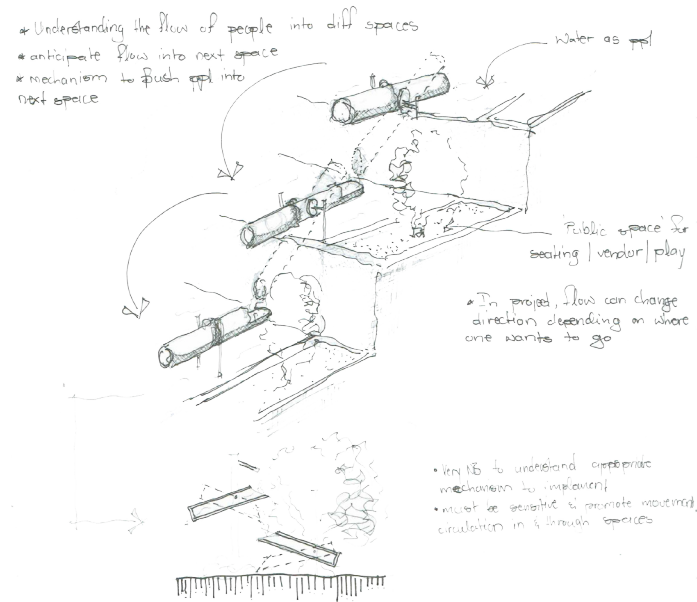 * Understanding the flow of people into diff spaces
* anticipate flow into next space
* Mechanism to push ppl into
next space
Water as ppl
'Public space' for
seating / vendor / play
* In project, flow can change
direction depending on where
one wants to go
• Very NB to understand appropriate
mechanism to implement
• must be sensitive & promote movement,
circulation in & through spaces